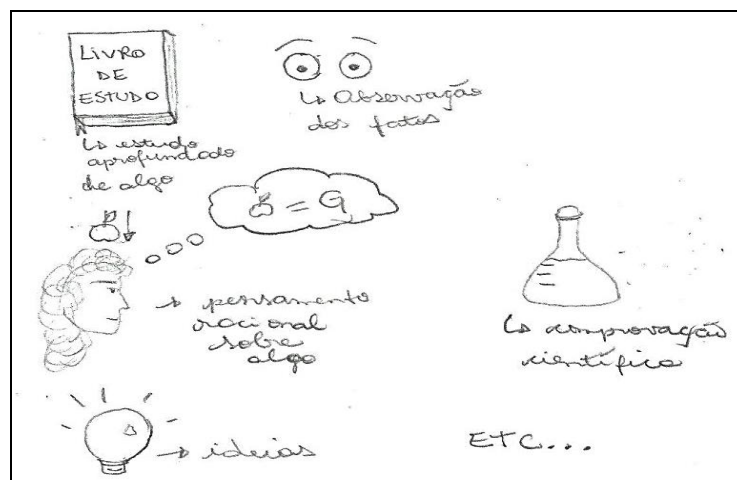 LIVRO
DE
ESTUDO
↳ estudo
aprofundado
de algo
↳ Observação
dos fatos
= G
→ pensamento
racional
sobre
algo
↳ comprovação
científica
→ ideias
ETC...